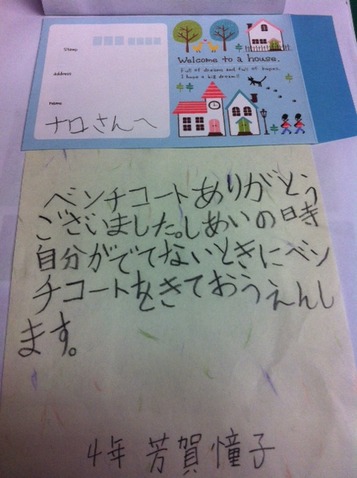 Stamp
Address
Name
Welcome to a house.
Full of dreams and full of hopes.
I have a big dream!!
ナロさんへ
ベンチコートありがとう
ございました。しあいの時
自分がでてないときにベン
チコートをきておうえんし
ます。
4年 芳賀 憧子